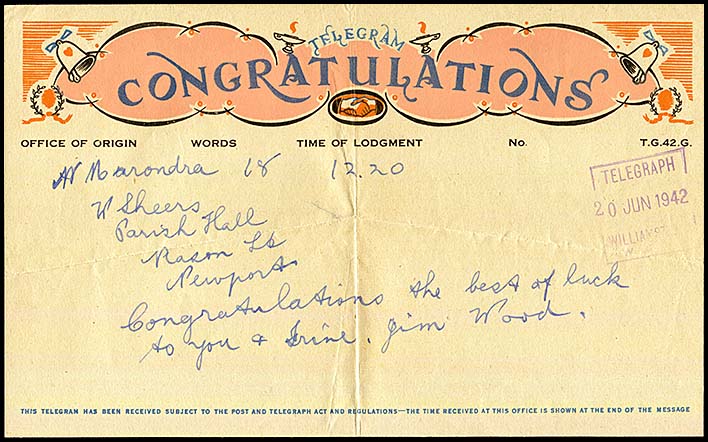 TELEGRAM
CONGRATULATIONS
OFFICE OF ORIGIN WORDS TIME OF LODGMENT No. T.G.42.G.
Marondra 18 12.20
TELEGRAPH
20 JUN 1942
W Sheers
Parish Hall
Mason St
Newport
Congratulations the best of luck
to you & Irine. Jim Wood.
THIS TELEGRAM HAS BEEN RECEIVED SUBJECT TO THE POST AND TELEGRAPH ACT AND REGULATIONS—THE TIME RECEIVED AT THIS OFFICE IS SHOWN AT THE END OF THE MESSAGE